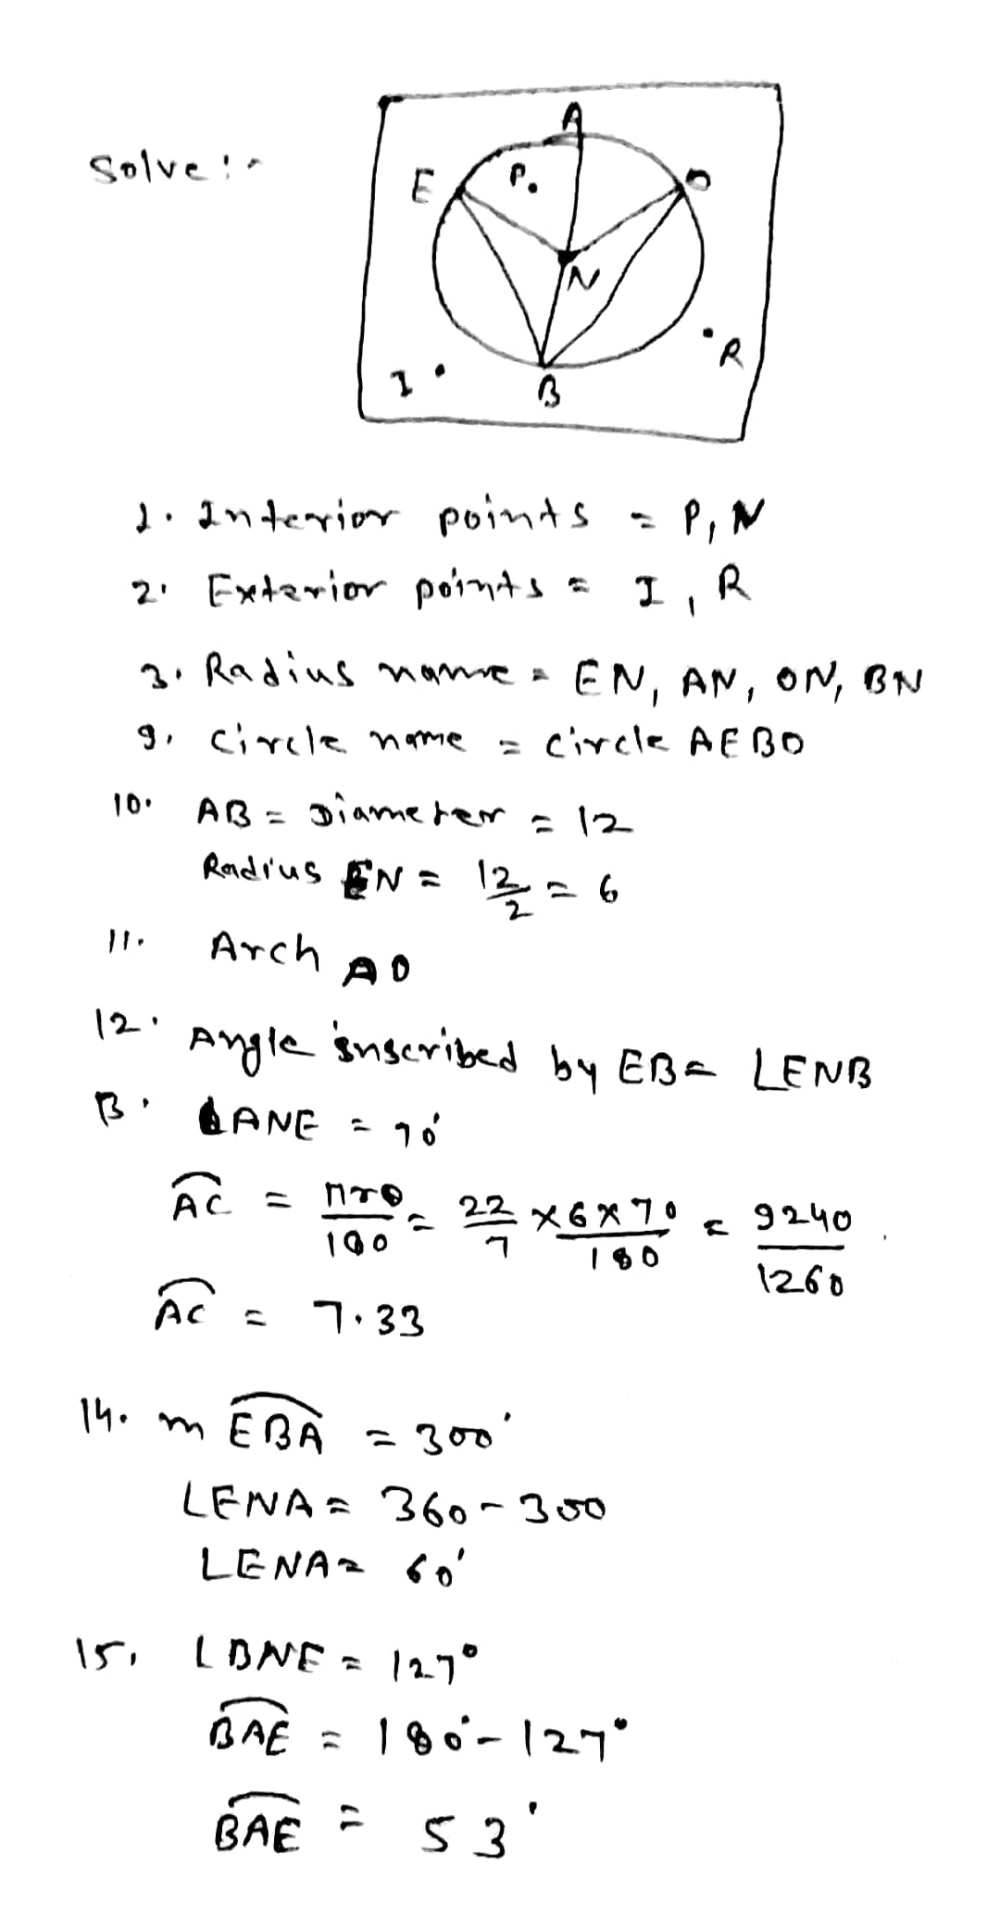 Solve :-
A
E
P.
O
N
R
I
B
1. Interior points = P, N
2. Exterior points = I, R
3. Radius name = EN, AN, ON, BN
9. Circle name = circle AEBO
10. AB = Diameter = 12
Radius EN = 12/2 = 6
11. Arch AO
12. Angle inscribed by EB = ∠ENB
13. ∠ANE = 70°
⌒AC = πrθ/180 = 22/7 × 6 × 70/180 = 9240/1260
⌒AC = 7.33
14. m ⌒EBA = 300°
∠ENA = 360 - 300
∠ENA = 60°
15. ∠BNE = 127°
⌒BAE = 180° - 127°
⌒BAE = 53°